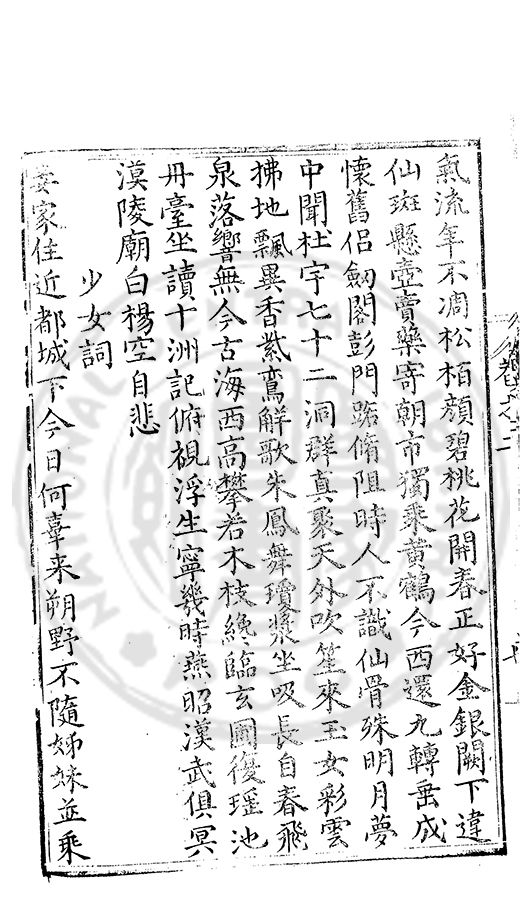 氣流年不凋松栢顏碧桃花開春正好金銀闕下違
仙班懸壺賣藥寄朝市獨乘黃鶴今西還九轉垂成
懷舊侶劒閣彭門路脩阻時人不識仙骨殊明月夢
中聞杜宇七十二洞群真聚天外吹笙來玉女彩雲
拂地飄異香紫鸞觧歌朱鳳舞瓊漿坐吸長自春飛
泉落響無今古海西高攀若木枝絶臨玄圃復瑶池
丹臺坐讀十洲記俯視浮生寧幾時燕昭漢武俱冥
漠陵廟白楊空自悲
少女詞
妾家住近都城下今日何辜来朔野不隨姊妹並乘